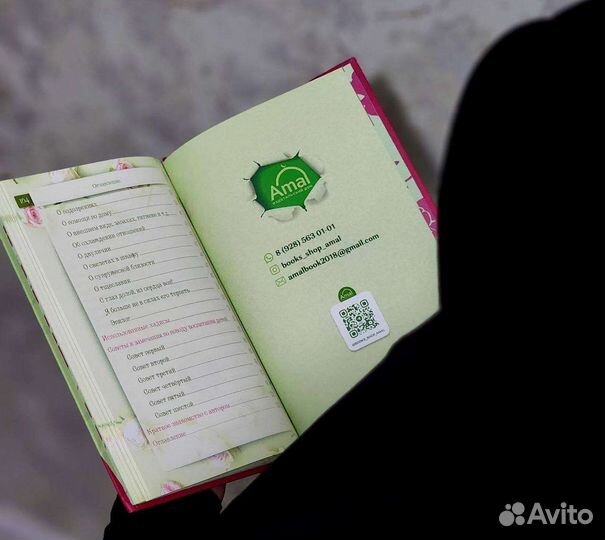 194
Оглавление
О подозрениях
О помощи по дому
О внешнем виде, запахах, гигиене и т.д.
Об охлаждении отношений
О двуличии
О скелетах в шкафу
О супружеской близости
О тщеславии
С глаз долой, из сердца вон!
Я больше не в силах его терпеть
Эпилог
Использованные хадисы
Советы и замечания по поводу воспитания детей
Совет первый
Совет второй
Совет третий
Совет четвёртый
Совет пятый
Совет шестой
Краткое знакомство с автором
Оглавление
Amal
ИЗДАТЕЛЬСКИЙ ДОМ
8 (928) 563 01-01
books_shop_amal
amalbook2018@gmail.com
Amal
Avito